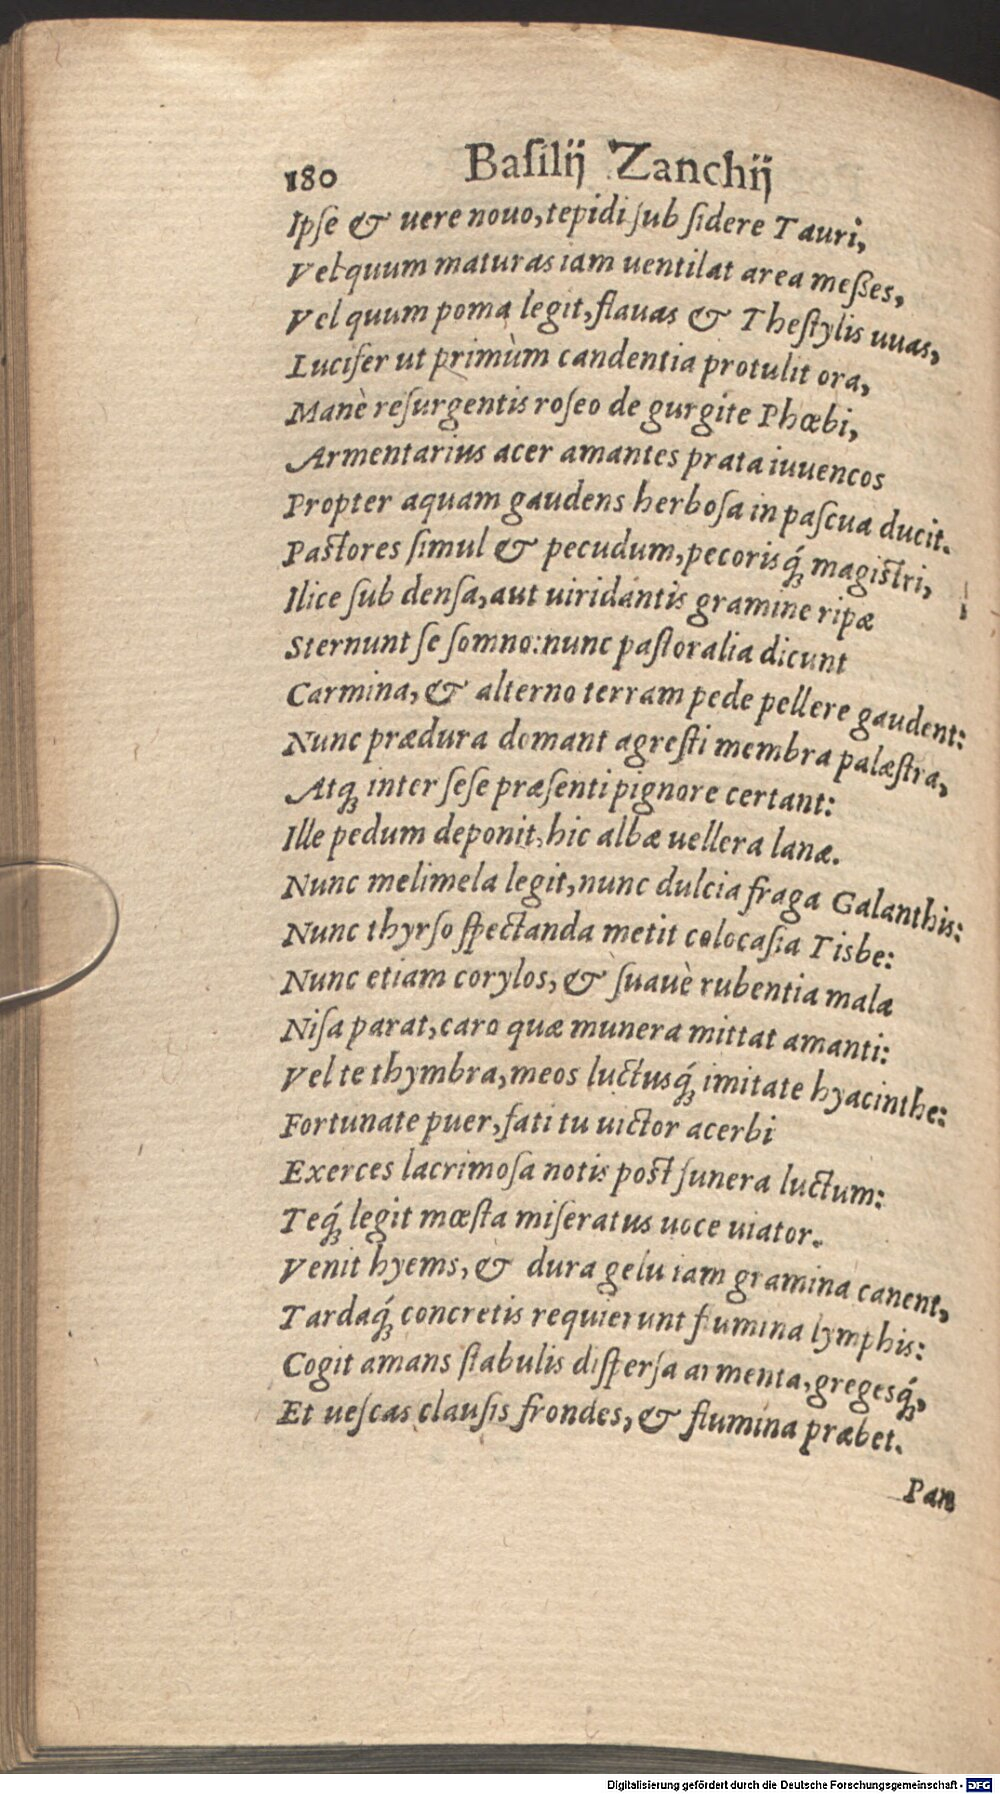 180 Baſilij Zanchij
Ipſe & uere nouo, tepidi ſub ſidere Tauri,
Vel quum maturas iam uentilat area meſſes,
Vel quum poma legit, flauas & Theſtylis uuas,
Lucifer ut primùm candentia protulit ora,
Manè reſurgentis roſeo de gurgite Phœbi,
Armentarius acer amantes prata iuuencos
Propter aquam gaudens herboſa in paſcua ducit.
Paſtores ſimul & pecudum, pecorisq́; magiſtri,
Ilice ſub denſa, aut uiridantis gramine ripæ
Sternunt ſe ſomno: nunc paſtoralia dicunt
Carmina, & alterno terram pede pellere gaudent:
Nunc prædura domant agreſti membra palæſtra,
Atq; inter ſeſe præſenti pignore certant:
Ille pedum deponit, hic albæ uellera lanæ.
Nunc melimela legit, nunc dulcia fraga Galanthis:
Nunc thyrſo ſpectanda metit colocaſia Tisbe:
Nunc etiam corylos, & ſuauè rubentia mala
Niſa parat, caro quæ munera mittat amanti:
Vel te thymbra, meos luctusq́; imitate hyacinthe:
Fortunate puer, fati tu uictor acerbi
Exerces lacrimoſa notis poſt funera luctum:
Teq́; legit mœſta miſeratus uoce uiator.
Venit hyems, & dura gelu iam gramina canent,
Tardaq́; concretis requierunt flumina lymphis:
Cogit amans ſtabulis diſperſa armenta, gregesq́;,
Et ueſcas clauſis frondes, & flumina præbet.
Pan
Digitalisierung gefördert durch die Deutsche Forschungsgemeinschaft - DFG